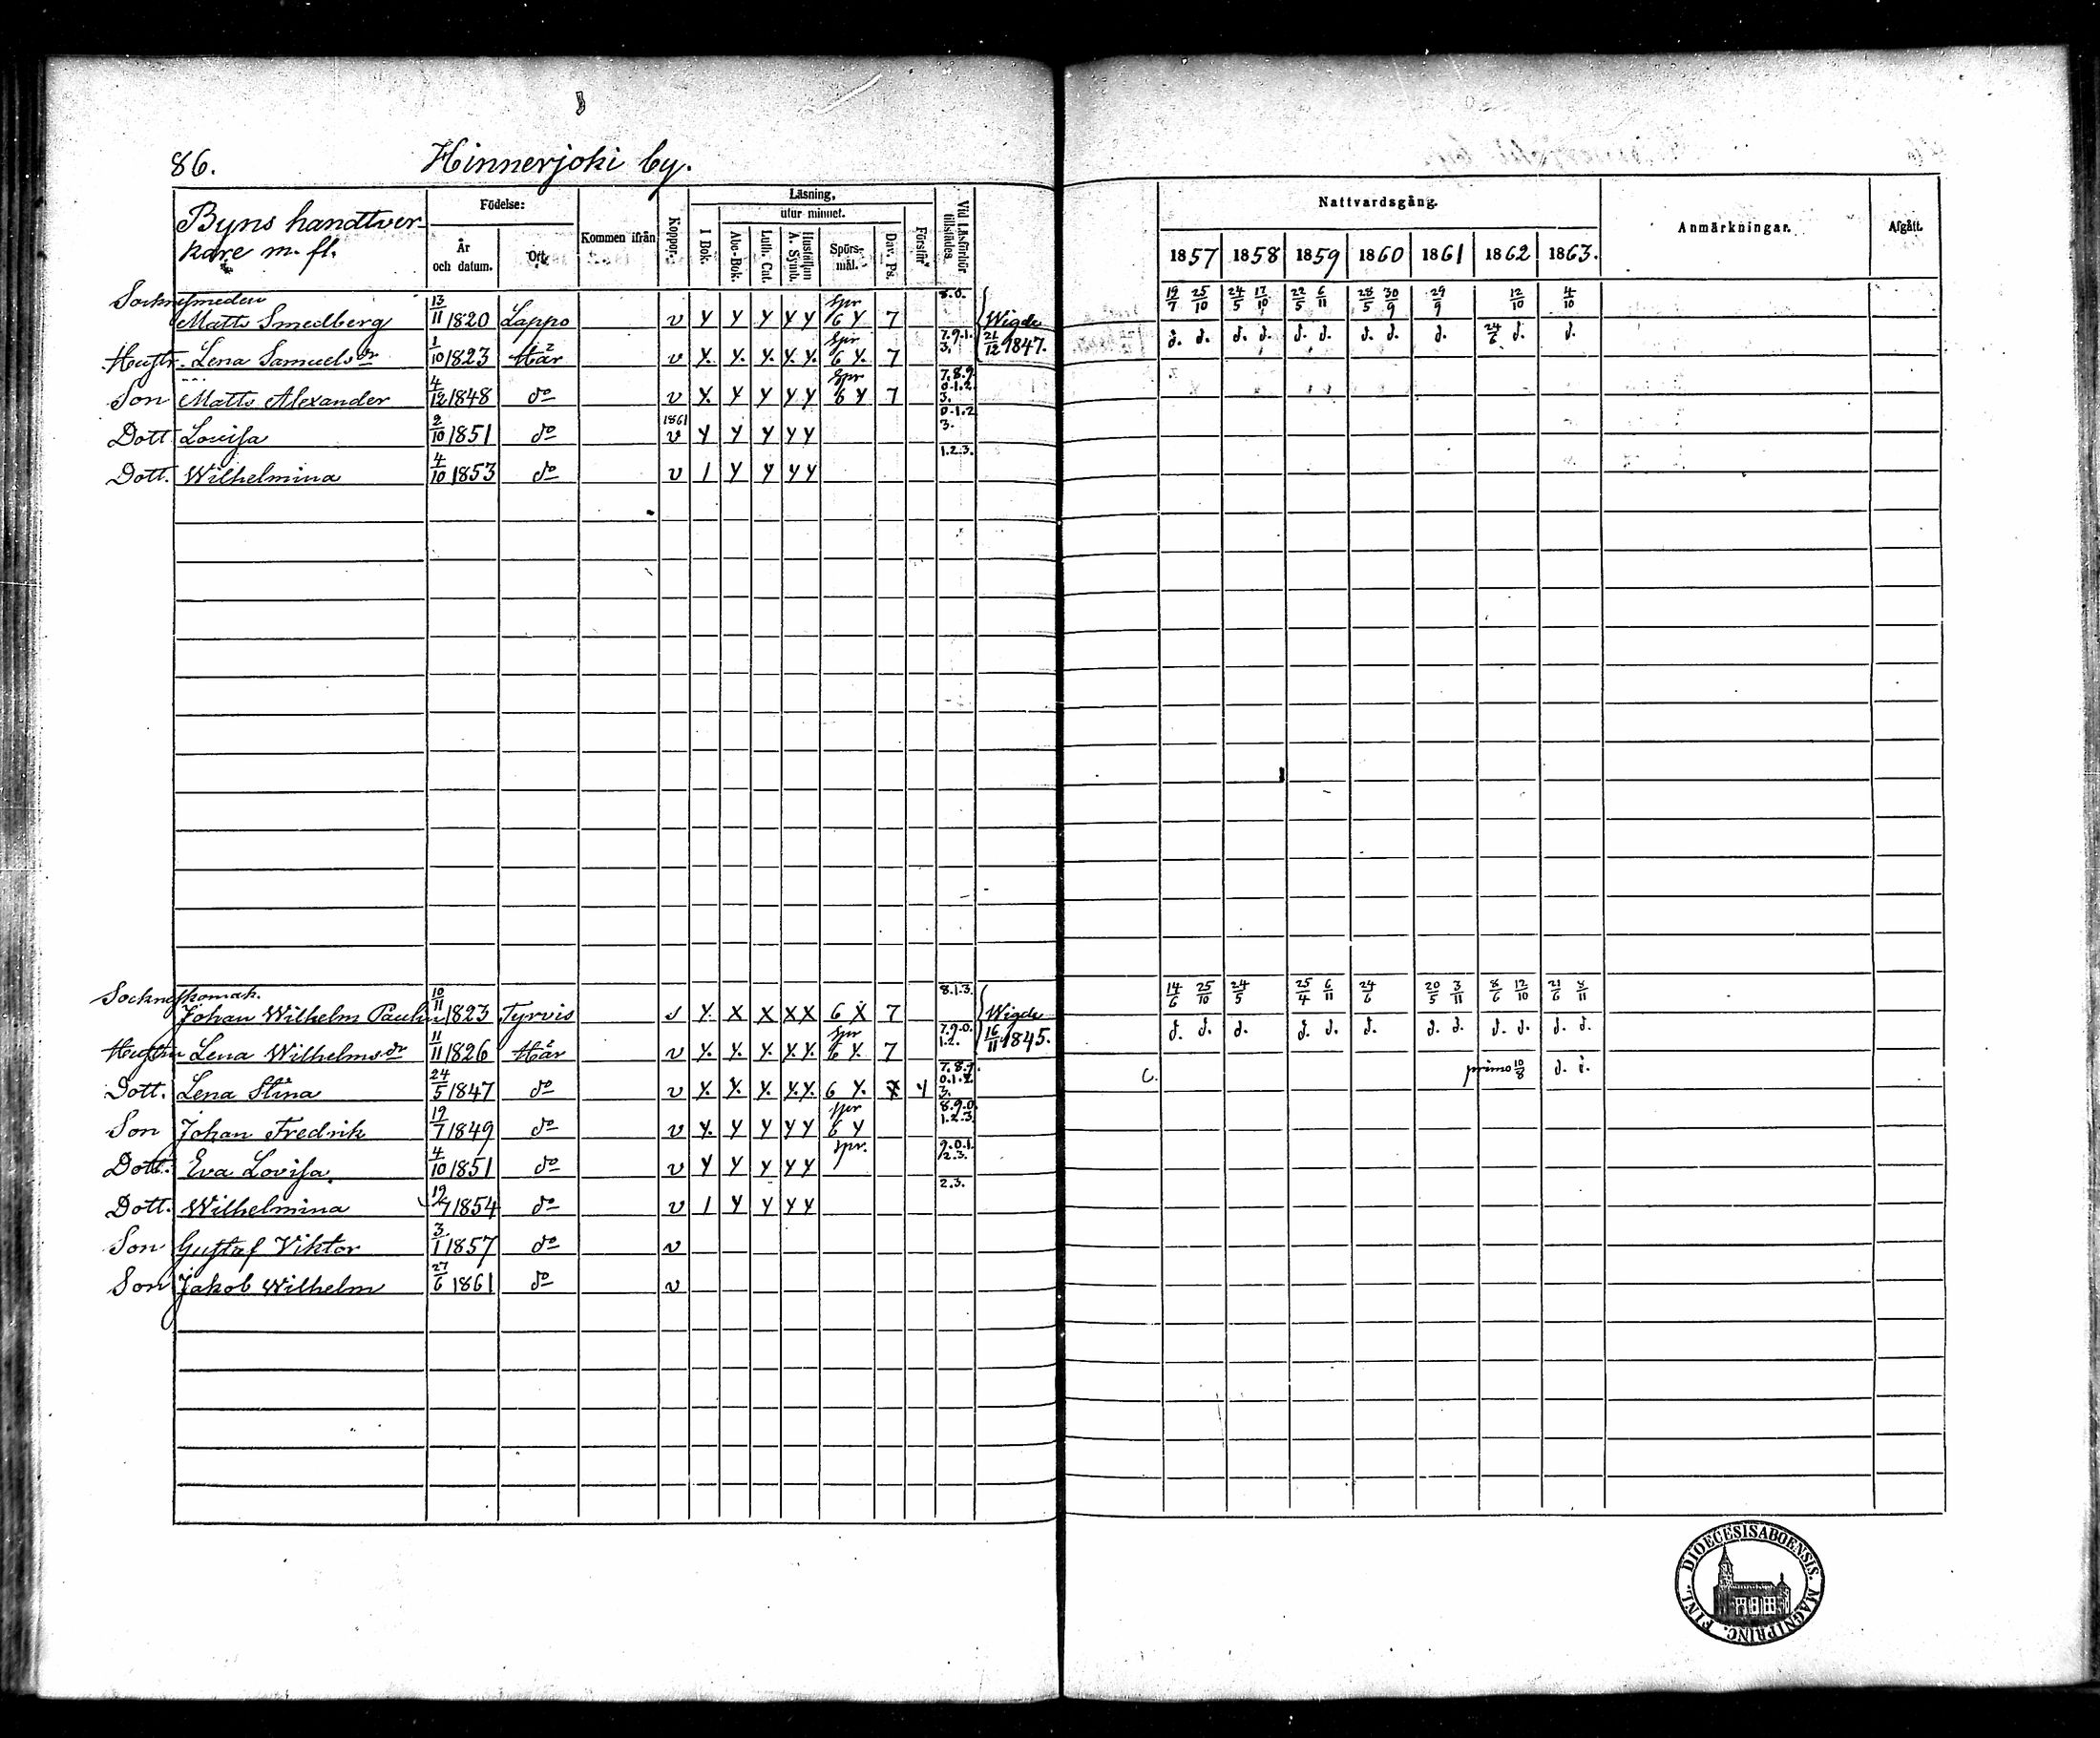 86. Hinnerjoki by.
Byns handtver-
kare m. fl.
Födelse:
År och datum.
Ort.
Kommen ifrån
Koppor.
Läsning,
utur minnet.
I Bok.
Abc-Bok.
Luth. Cat.
Hustaflan A. Symb.
Spörs-mål.
Dav. Ps.
Förstår
Vid Läsförhör tillstädes.
Nattvardsgång.
1857 1858 1859 1860 1861 1862 1863.
Anmärkningar.
Afgått.
Socknesmeden 13/11 Spr 8.0. 19/7 25/10 24/5 17/10 22/5 6/11 28/5 30/9 29/9 12/10 4/10
Matts Smedberg 1820 Lappo v Y Y Y Y Y 6 Y 7 Wigde
Hustr. Lena Samuelsdr 1/10 1823 Här v Y. Y. Y. Y. Y. Spr 6 Y. 7 7.9.1.3. 21/12 1847. d. d. d. d. d. d. d. d. d. 24/6 d. d.
Son Matts Alexander 4/12 1848 do v Y. Y Y Y Y Spr 6 Y 7 7.8.9.0.1.2.3.
Dott Lovisa 2/10 1851 do 1861 v Y Y Y Y Y 0.1.2 3.
Dott. Wilhelmina 4/10 1853 do v 1 Y Y Y Y 1.2.3.
Socknesskomak. 10/11 8.1.3. 14/6 25/10 24/5 25/4 6/11 24/6 20/5 3/11 8/6 12/10 21/6 8/11
Johan Wilhelm Paulin 1823 Tyrvis s Y. X X X X 6 X 7 Wigde
Hustrun Lena Wilhelmsdr 11/11 1826 Här v Y. Y. Y. Y. Y. Spr 6 Y. 7 7.9.0.1.2. 16/11 1845. d. d. d. d. d. d. d. d. d. d. d. d.
Dott. Lena Stina 24/5 1847 do v Y. Y. Y. Y. Y. 6 Y. 7.8.9.0.1.2.3. C. primo 10/8
Son Johan Fredrik 19/7 1849 do v Y. Y Y Y Y Spr 6 Y 8.9.0.1.2.3.
Dott. Eva Lovisa. 4/10 1851 do v Y Y Y Y Y Spr. 9.0.1.2.3.
Dott. Wilhelmina 19/7 1854 do v 1 Y Y Y Y 2.3.
Son Gustaf Viktor 3/1 1857 do v
Son Jakob Wilhelm 27/6 1861 do v
DIOECESIS ABOENSIS. MAGNI PRINC. FINL.